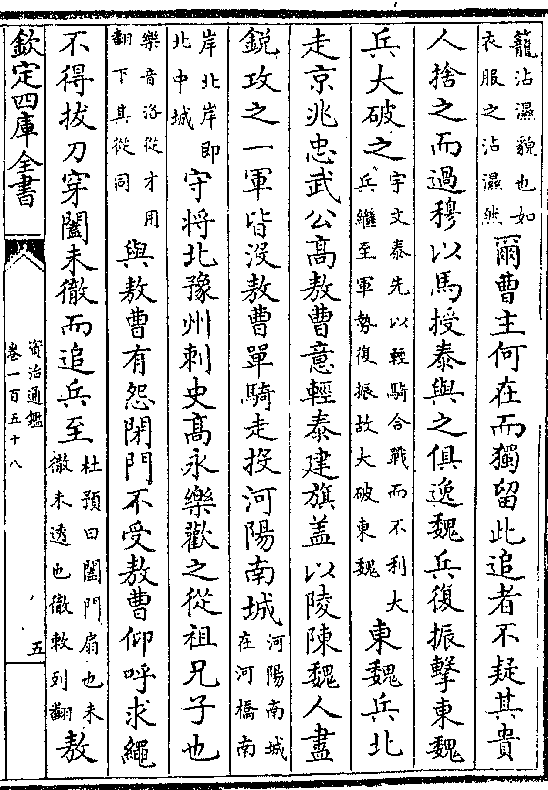 籠沾濕貌也如
衣服之沾濕然
爾曹主何在而獨留此追者不疑其貴
人捨之而過穆以馬授泰與之俱逸魏兵復振擊東魏
兵大破之
宇文泰先以輕騎合戰而不利大
兵繼至軍勢復振故大破東魏
東魏兵北
走京兆忠武公髙敖曹意輕泰建旗盖以陵陳魏人盡
鋭攻之一軍皆沒敖曹單騎走投河陽南城
河陽南城
在河橋南
岸北岸即
北中城
守將北豫州刺史髙永樂歡之從祖兄子也
樂音洛從才用
翻下其從同
與敖曹有怨閉門不受敖曹仰呼求繩
不得拔刀穿闔未徹而追兵至
杜預曰闔門扇也未
徹未透也徹敕列翻
敖
欽定四庫全書
資治通鑑
卷一百五十八
五